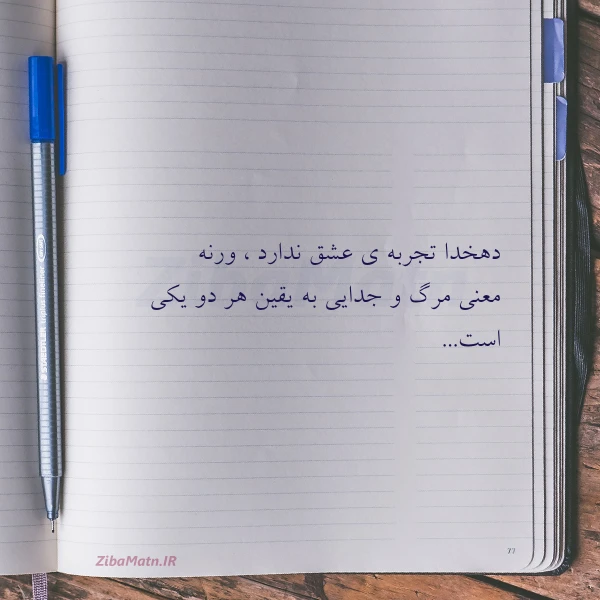 دهخدا تجربه ی عشق ندارد ، ورنه
معنی مرگ و جدایی به یقین هر دو یکی
است...
ZibaMatn.IR